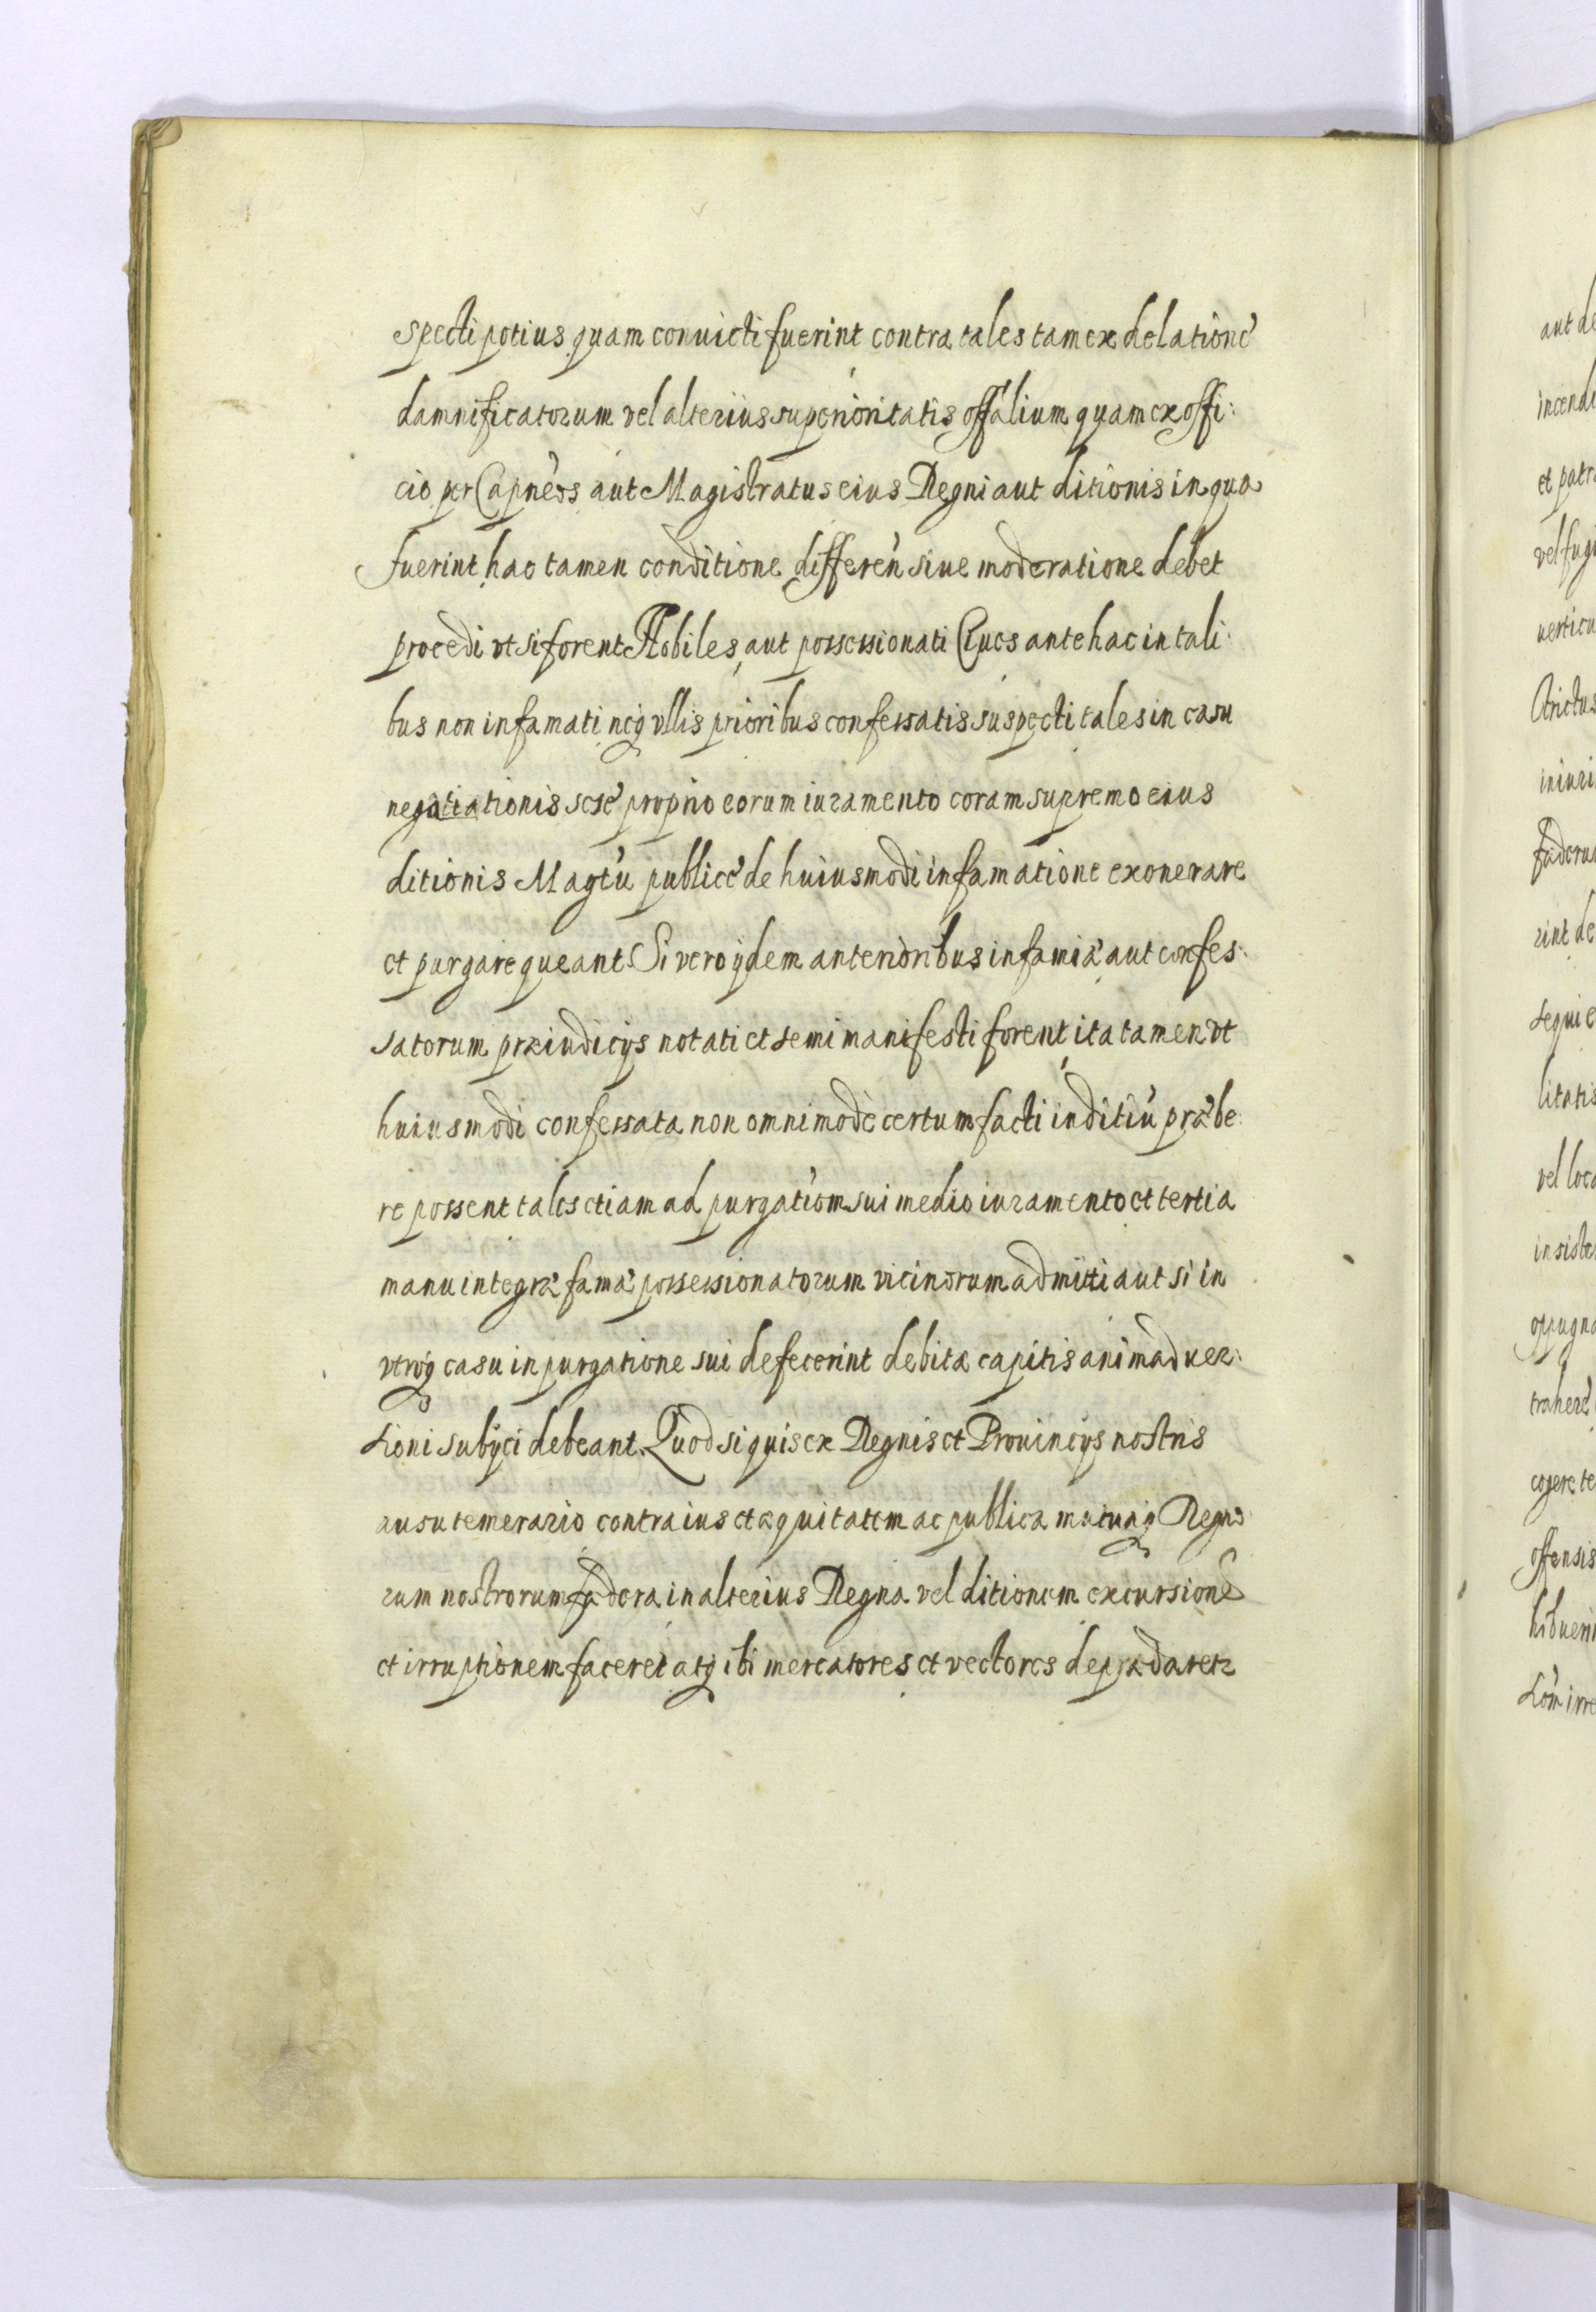 specti potius quam conuicti fuerint contra tales tam ex delatione
damnificatorum vel alterius superioritatis offâlium quam ex offi:
cio per Capneôs aut Magistratus eius Regni aut ditionis in qua
fuerint hac tamen conditione differeń siue moderatione debet
procedi vt si forent Nobiles, aut possessionati Ciues ante hac in tali:
bus non infamati neqȝ vllis prioribus confessatis suspecti tales in casu
negatiationis sesé proprio eorum iuramento coram supremo eius
ditionis Magtu publicè de huiusmodi infamatione exonerare
et purgare queant Si vero ydem anterioribus infamiæ aut confes:
satorum præiudicys notati et semimanifesti forent ita tamen vt
huiusmodi confessata non omnimodè certum facti inditiú præbe:
re possent tales etiam ad purgatiom sui medio iuramento et tertia
manu integræ famæ possessionatorum vicinorum admitti aut si in
vtroqȝ casu in purgatione sui defecerint debitæ capitis animaduer:
tioni subyci debeant. Quod si quis ex Regnis et Prouincys nostris
ausu temerario contra ius et æquitatem ac publica mutuaqȝ Regno:
rum nostrorum fædera in alterius Regna vel ditionem excursione
et irruptionem faceret atqȝ ibi mercatores et vectores deprædaretr
aut de
incendi
et patra
vel fug
uerticu
iniuri
fæderu
rint de
sequi e
litatis
vel loca
insiste
oppugna
trahere
cogere te
offensis
hibueri